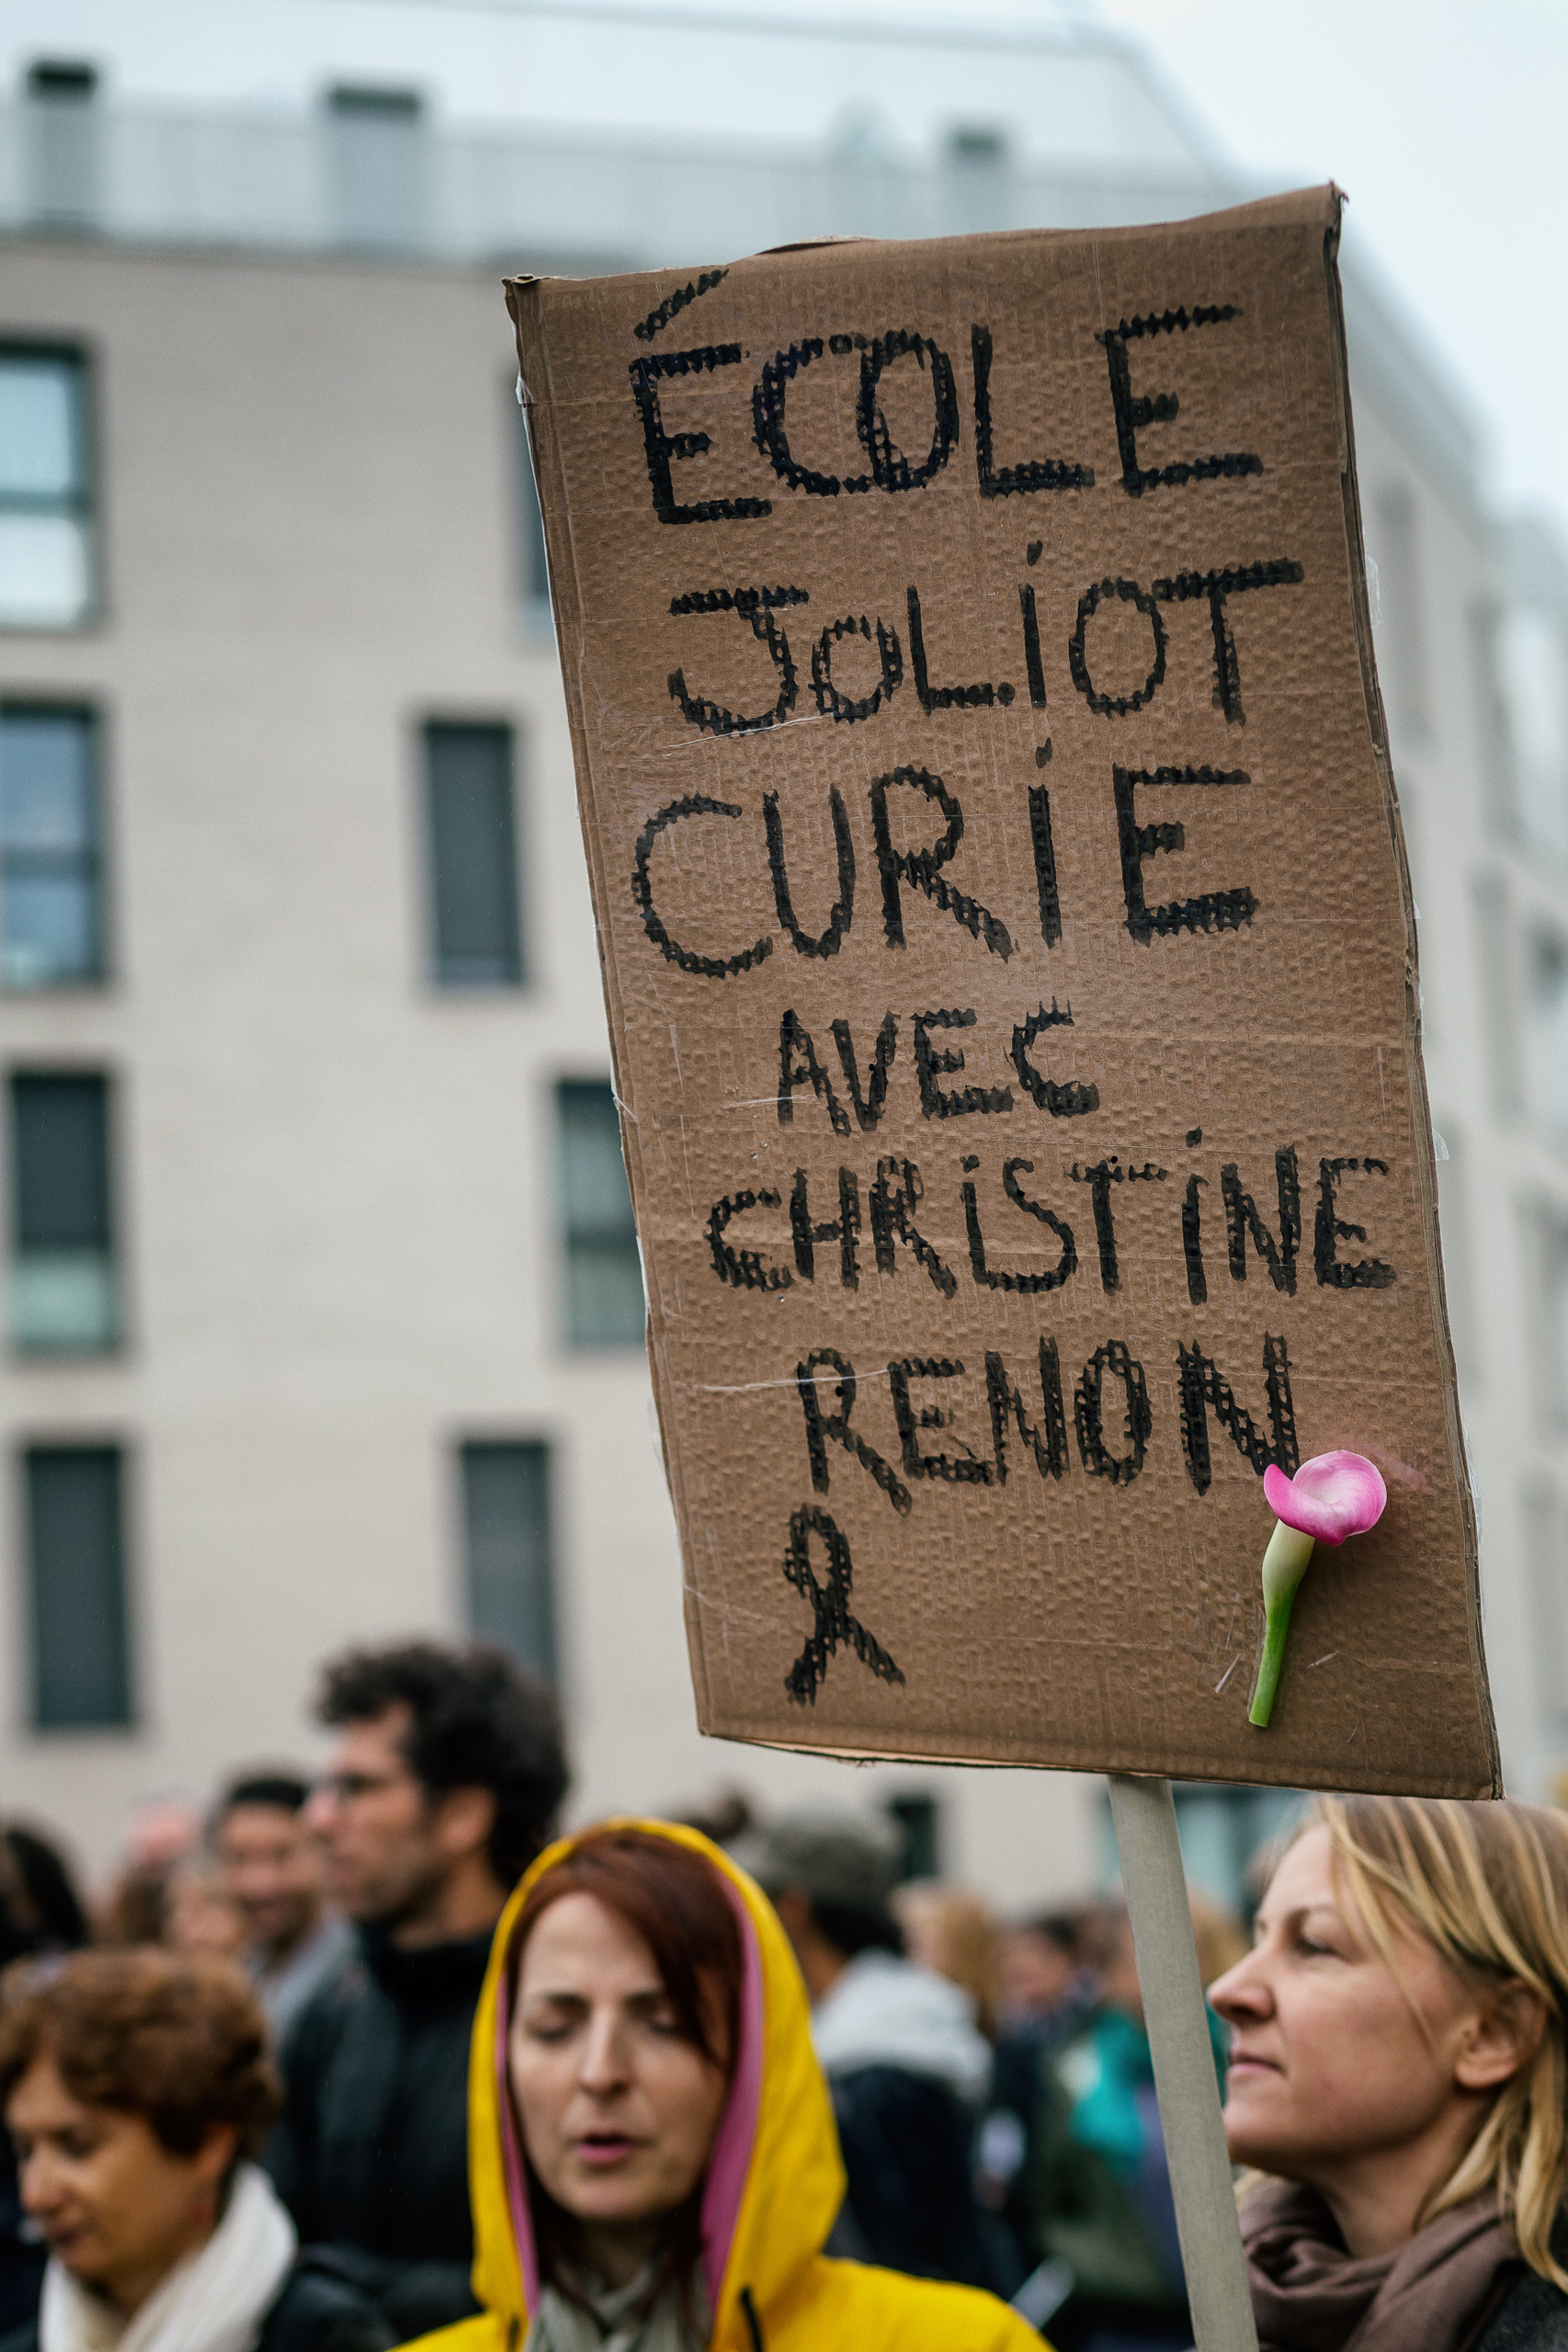 ÉCOLE
JOLiOT
CURiE
AVEC
CHRiSTiNE
RENON